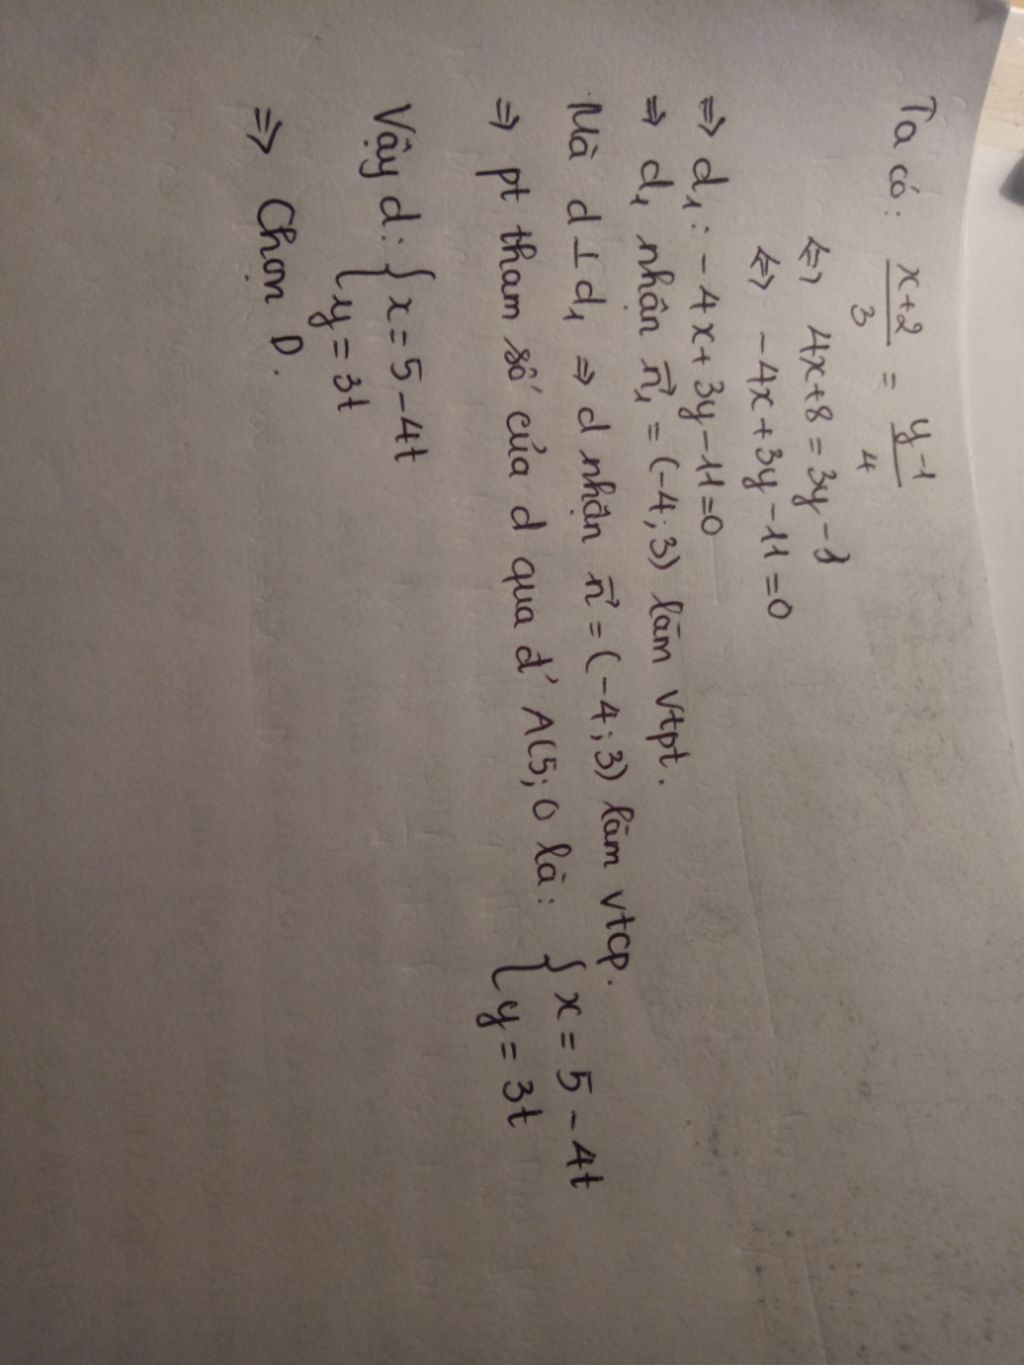 Ta có: x+2/3 = y-1/4
⇔ 4x+8 = 3y-3
⇔ -4x+3y-11=0
⇒ d₁: -4x+3y-11=0
⇒ d₁ nhận n⃗₁ = (-4; 3) làm vtpt.
Mà d ⊥ d₁ ⇒ d nhận n⃗ = (-4; 3) làm vtcp.
⇒ pt tham số của d qua đ' A(5; 0 là: { x = 5 - 4t
y = 3t
Vậy d: { x = 5 - 4t
y = 3t
⇒ Chọn D.